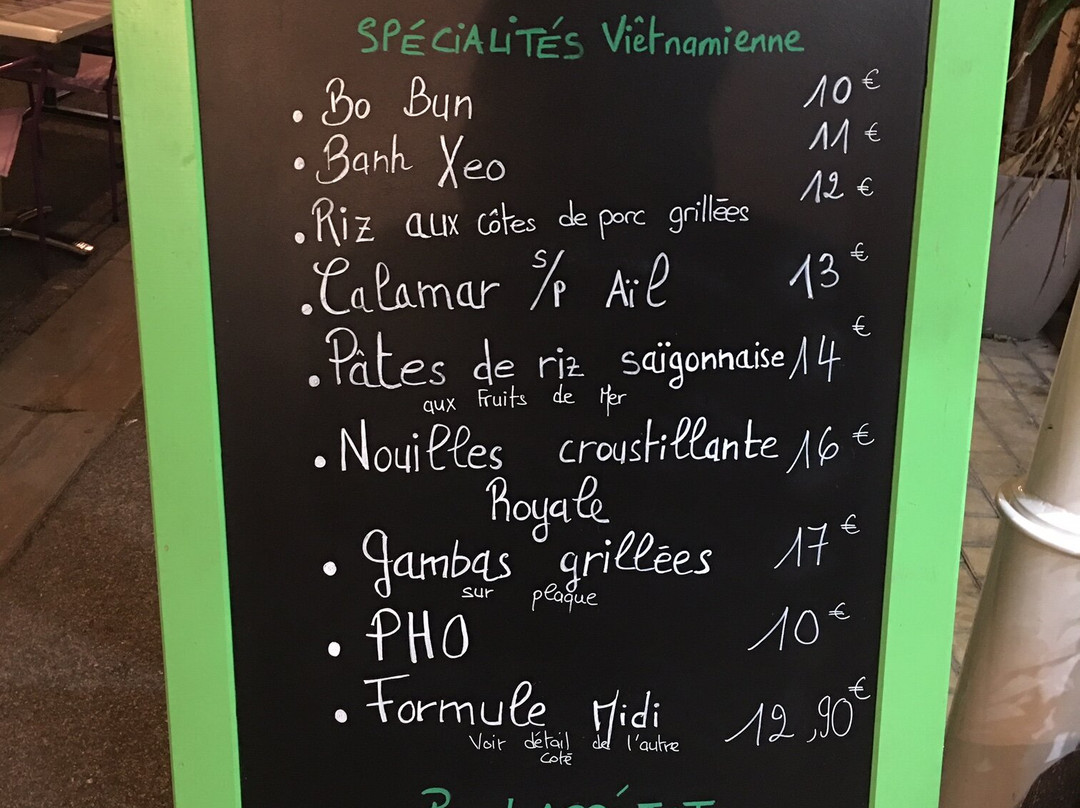 SPÉCIALITÉS Viêtnamienne
. Bo Bun 10 €
. Banh Xeo 11 €
. Riz aux côtes de porc grillées 12 €
. Calamar S/P Aïl 13 €
. Pâtes de riz saïgonnaise 14 €
aux Fruits de Mer
. Nouilles croustillante 16 €
Royale
. gambas grillées 17 €
sur plaque
. PHO 10 €
. Formule Midi 12,90 €
Voir détail de l'autre
coté